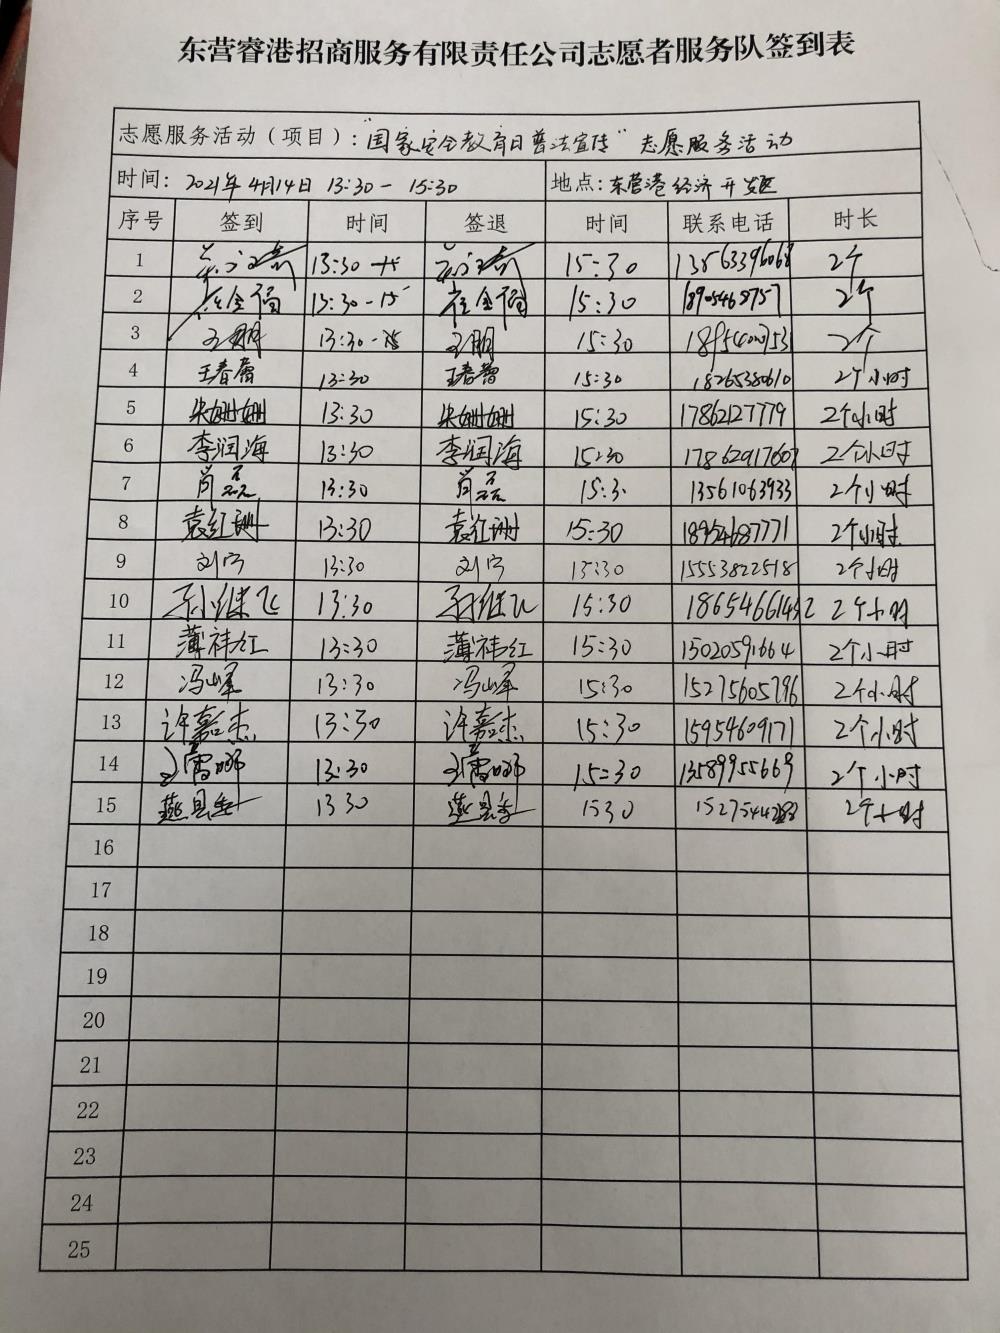 东营睿港招商服务有限责任公司志愿者服务队签到表
志愿服务活动（项目）：“国家安全教育日普法宣传”志愿服务活动
时间：2021年4月14日 13:30-15:30 地点：东营港经济开发区
序号 签到 时间 签退 时间 联系电话 时长
1 13:30 15:30 2个
2 13:30-15 15:30 18905468757 2个
3 13:30 15:30 2个
4 王春蕾 13:30 王春蕾 15:30 18265380610 2个小时
5 朱姗姗 13:30 朱姗姗 15:30 17862127779 2个小时
6 李润海 13:30 李润海 15:30 2个小时
7 尚磊 13:30 尚磊 15:3 13561063933 2个小时
8 袁红珊 13:30 袁红珊 15:30 18954687771 2个小时
9 刘宁 13:30 刘宁 15:30 15553822518 2个小时
10 孙继飞 13:30 孙继飞 15:30 2个小时
11 薄祎红 13:30 薄祎红 15:30 15020591664 2个小时
12 冯峰 13:30 冯峰 15:30 15275605796 2个小时
13 许嘉杰 13:30 许嘉杰 15:30 15954609171 2个小时
14 13:30 15:30 13589955669 2个小时
15 1330 1530 2个小时
16
17
18
19
20
21
22
23
24
25